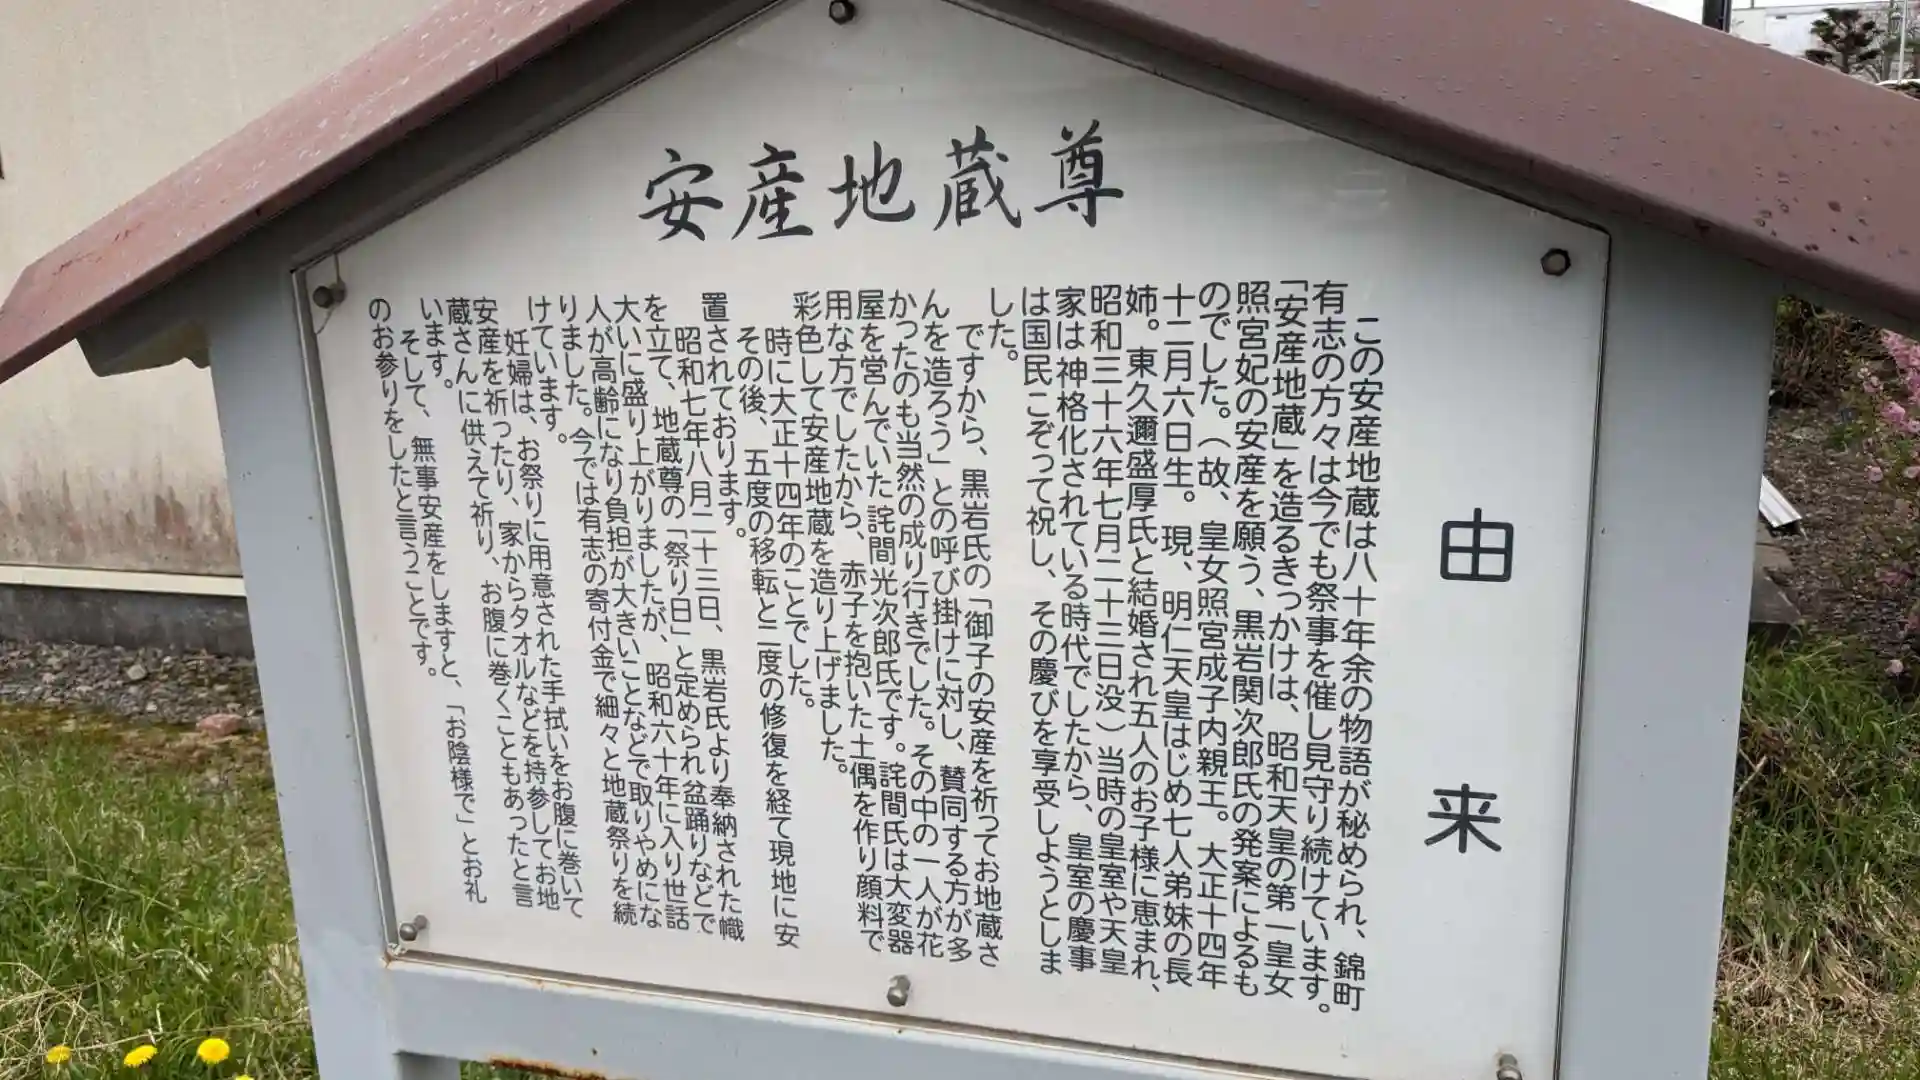 安産地蔵尊
由来
この安産地蔵は八十年余の物語が秘められ、錦町
有志の方々は今でも祭事を催し見守り続けています。
「安産地蔵」を造るきっかけは、昭和天皇の第一皇女
照宮妃の安産を願う、黒岩関次郎氏の発案によるも
のでした。（故、皇女照宮成子内親王。大正十四年
十二月六日生。現、明仁天皇はじめ七人弟妹の長
姉。東久邇盛厚氏と結婚され五人のお子様に恵まれ、
昭和三十六年七月二十三日没）当時の皇室や天皇
家は神格化されている時代でしたから、皇室の慶事
は国民こぞって祝し、その慶びを享受しようとしま
した。
ですから、黒岩氏の「御子の安産を祈ってお地蔵さ
んを造ろう」との呼び掛けに対し、賛同する方が多
かったのも当然の成り行きでした。その中の一人が花
屋を営んでいた詫間光次郎氏です。詫間氏は大変器
用な方でしたから、赤子を抱いた土偶を作り顔料で
彩色して安産地蔵を造り上げました。
時に大正十四年のことでした。
その後、五度の移転と二度の修復を経て現地に安
置されております。
昭和七年八月二十三日、黒岩氏より奉納された幟
を立て、地蔵尊の「祭り日」と定められ盆踊りなどで
大いに盛り上がりましたが、昭和六十年に入り世話
人が高齢になり負担が大きいことなどで取りやめにな
りました。今では有志の寄付金で細々と地蔵祭りを続
けています。
妊婦は、お祭りに用意された手拭いをお腹に巻いて
安産を祈ったり、家からタオルなどを持参してお地
蔵さんに供えて祈り、お腹に巻くこともあったと言
います。
そして、無事安産をしますと、「お陰様で」とお礼
のお参りをしたと言うことです。